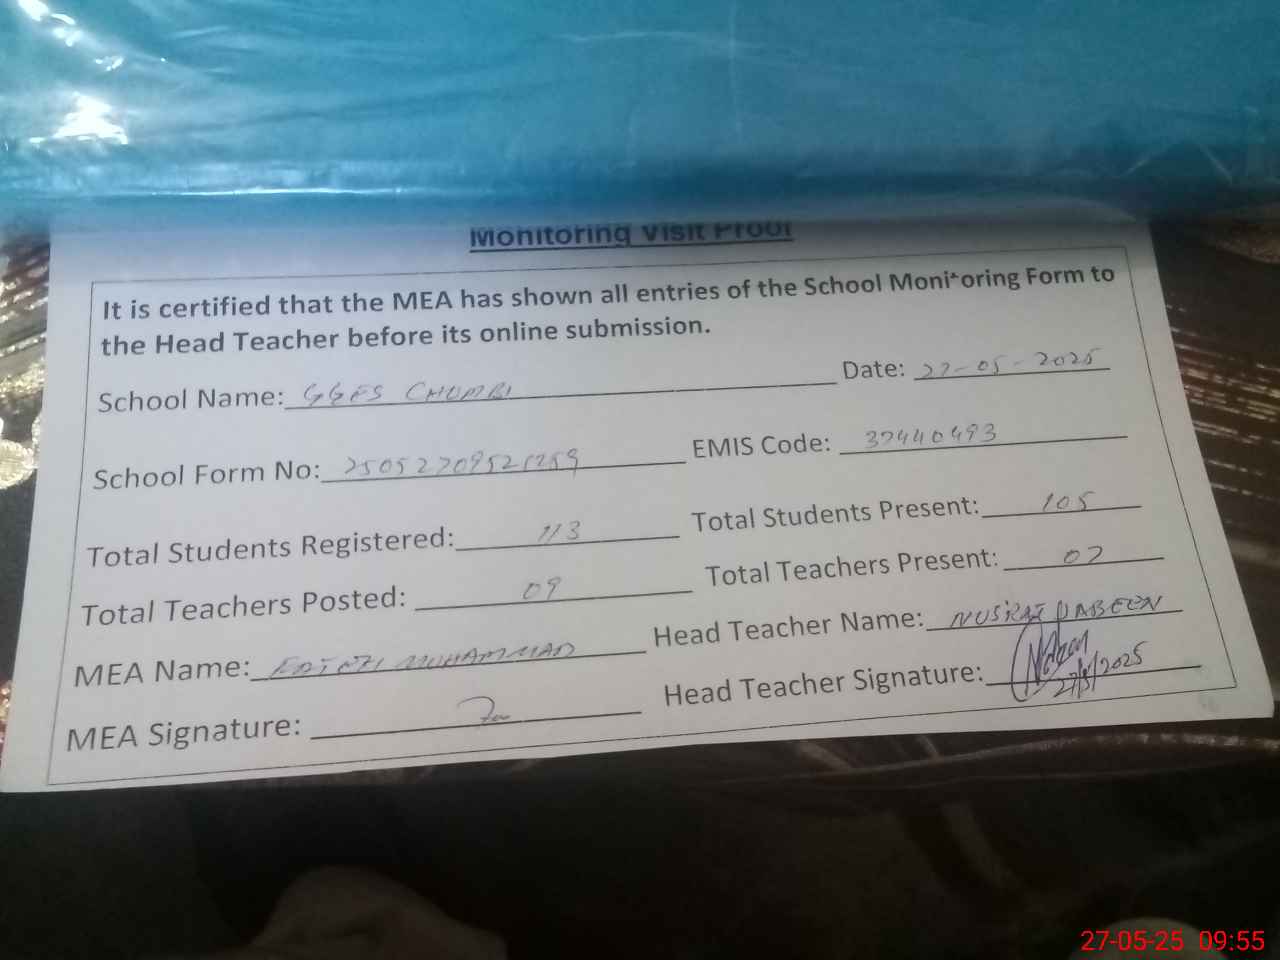 Monitoring Visit Proof
It is certified that the MEA has shown all entries of the School Monitoring Form to
the Head Teacher before its online submission.
School Name: GGES CHUMBI Date: 27-05-2025
School Form No: EMIS Code: 37440493
Total Students Registered: 113 Total Students Present: 105
Total Teachers Posted: 09 Total Teachers Present: 07
MEA Name: MUHAMMAD Head Teacher Name: NUSRAT JABEEN
MEA Signature: Head Teacher Signature: 27/5/2025
27-05-25 09:55